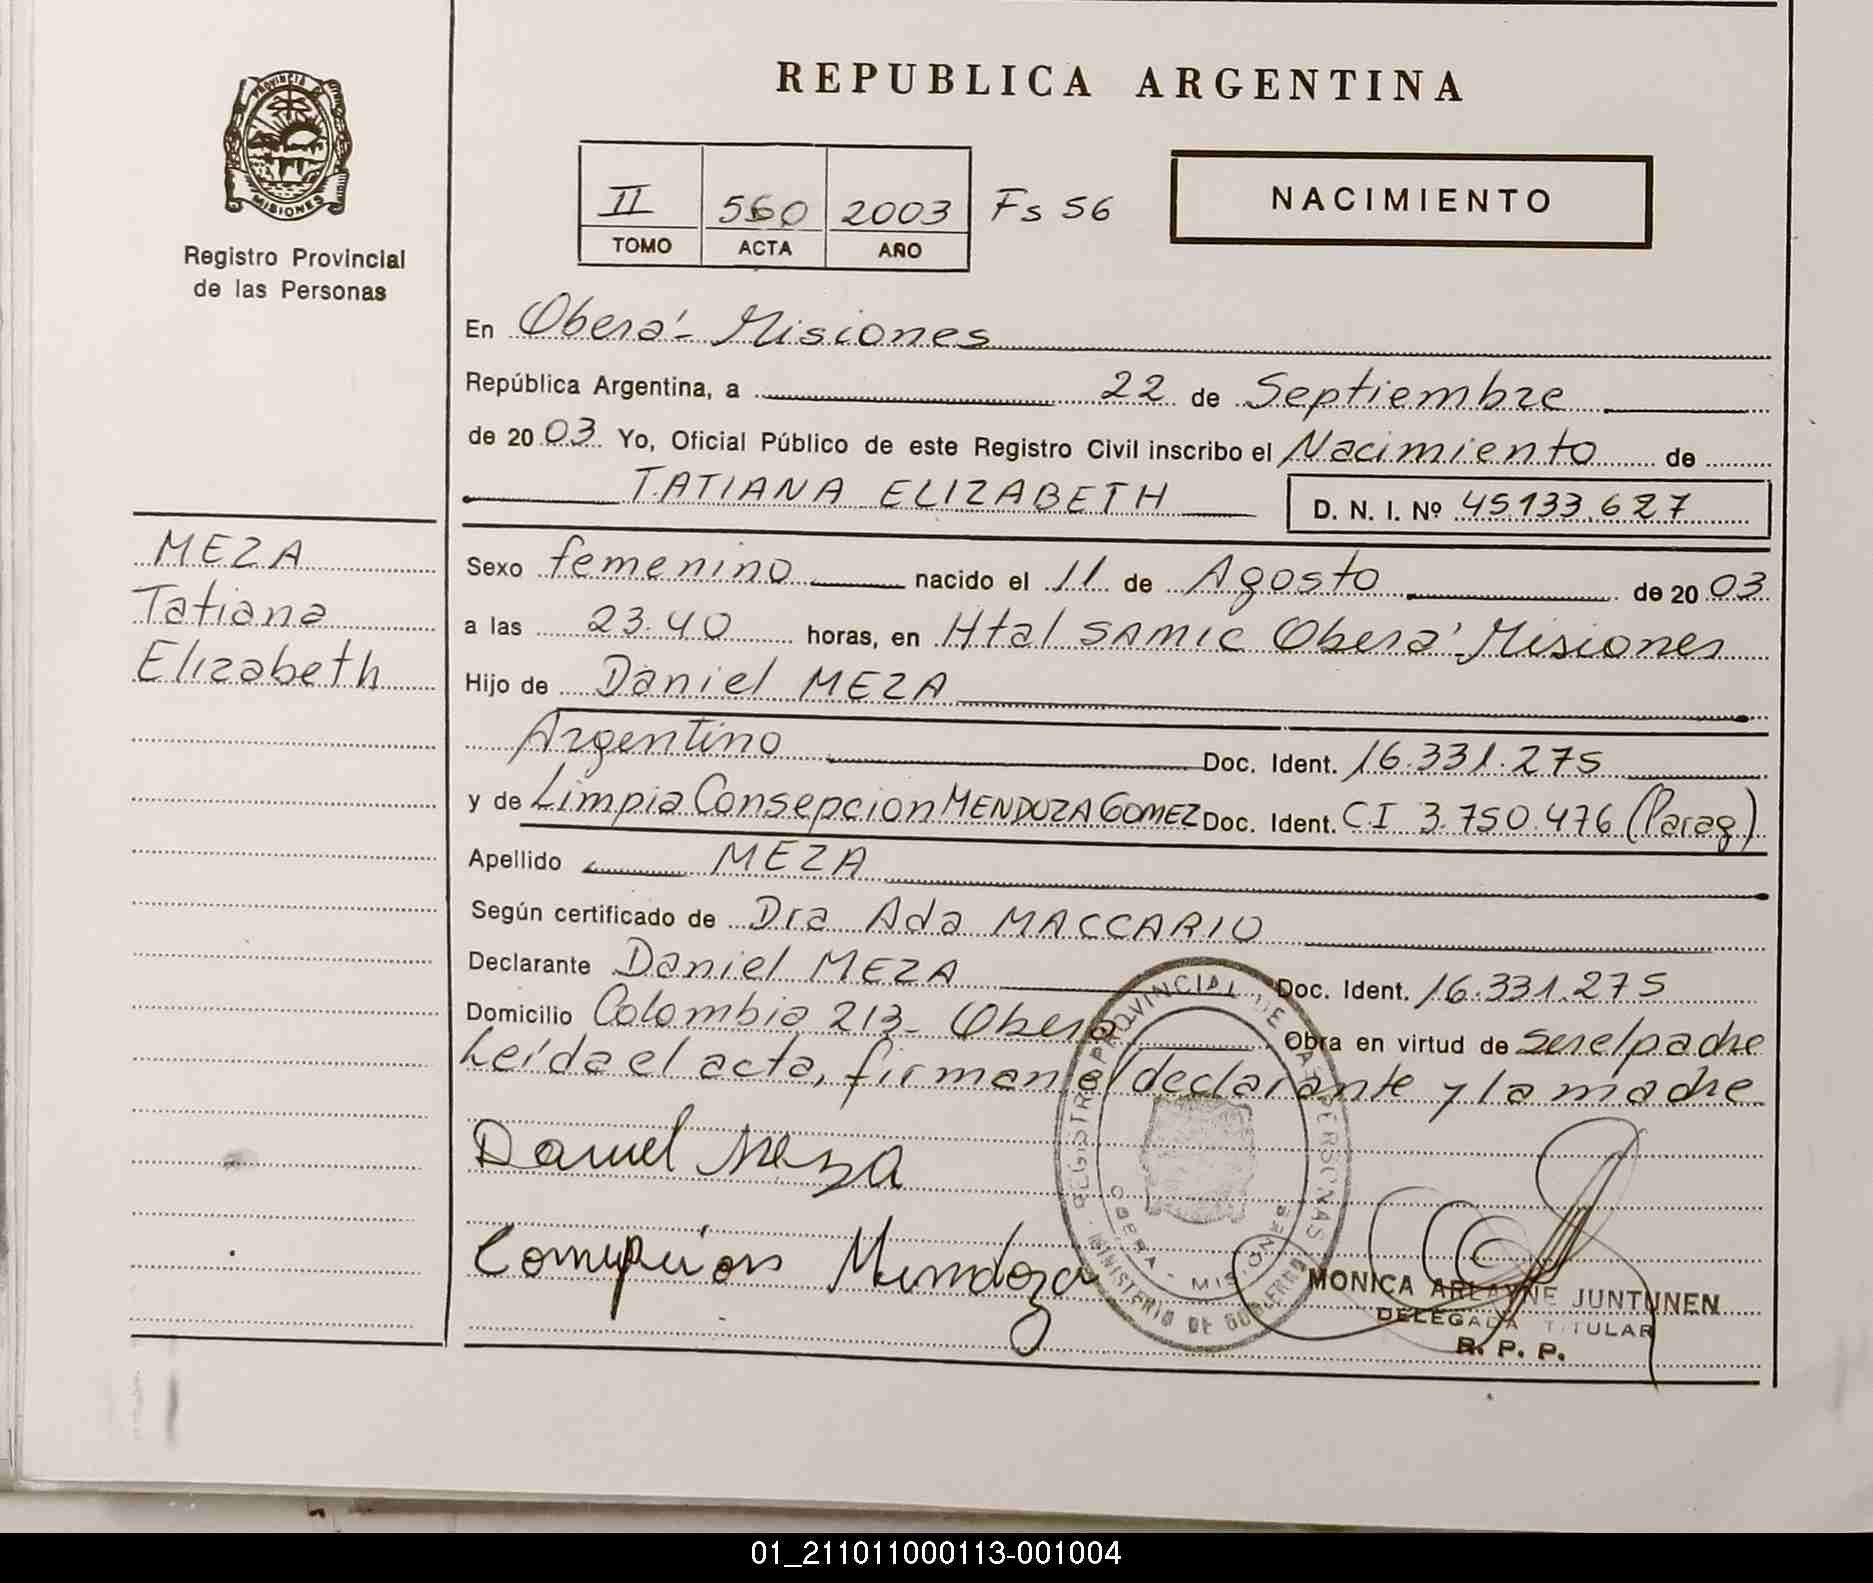 REPUBLICA ARGENTINA
PROVINCIA
MISIONES
Registro Provincial
de las Personas
II 560 2003 Fs 56
TOMO ACTA AÑO
NACIMIENTO
En Oberá - Misiones
República Argentina, a 22 de Septiembre
de 20 03 Yo, Oficial Público de este Registro Civil inscribo el Nacimiento de
TATIANA ELIZABETH D. N. I. Nº 45133.627
MEZA
Tatiana
Elizabeth
Sexo femenino nacido el 11 de Agosto de 20 03
a las 23.40 horas, en Htal SAMIC Oberá - Misiones
Hijo de Daniel MEZA
Argentino Doc. Ident. 16.331.275
y de Limpia Consepcion MENDOZA GOMEZ Doc. Ident. CI 3.750.476 (Parag)
Apellido MEZA
Según certificado de Dra Ada MACCARIO
Declarante Daniel MEZA Doc. Ident. 16.331.275
Domicilio Colombia 213 - Oberá Obra en virtud de ser el padre
Leída el acta, firman el declarante y la madre
Daniel Meza
Mendoza
REGISTRO PROVINCIAL DE LAS PERSONAS
OBERA - MISIONES
MINISTERIO DE GOBIERNO
MONICA ARLAYNE JUNTUNEN
DELEGADA TITULAR
R. P. P.
01_211011000113-001004